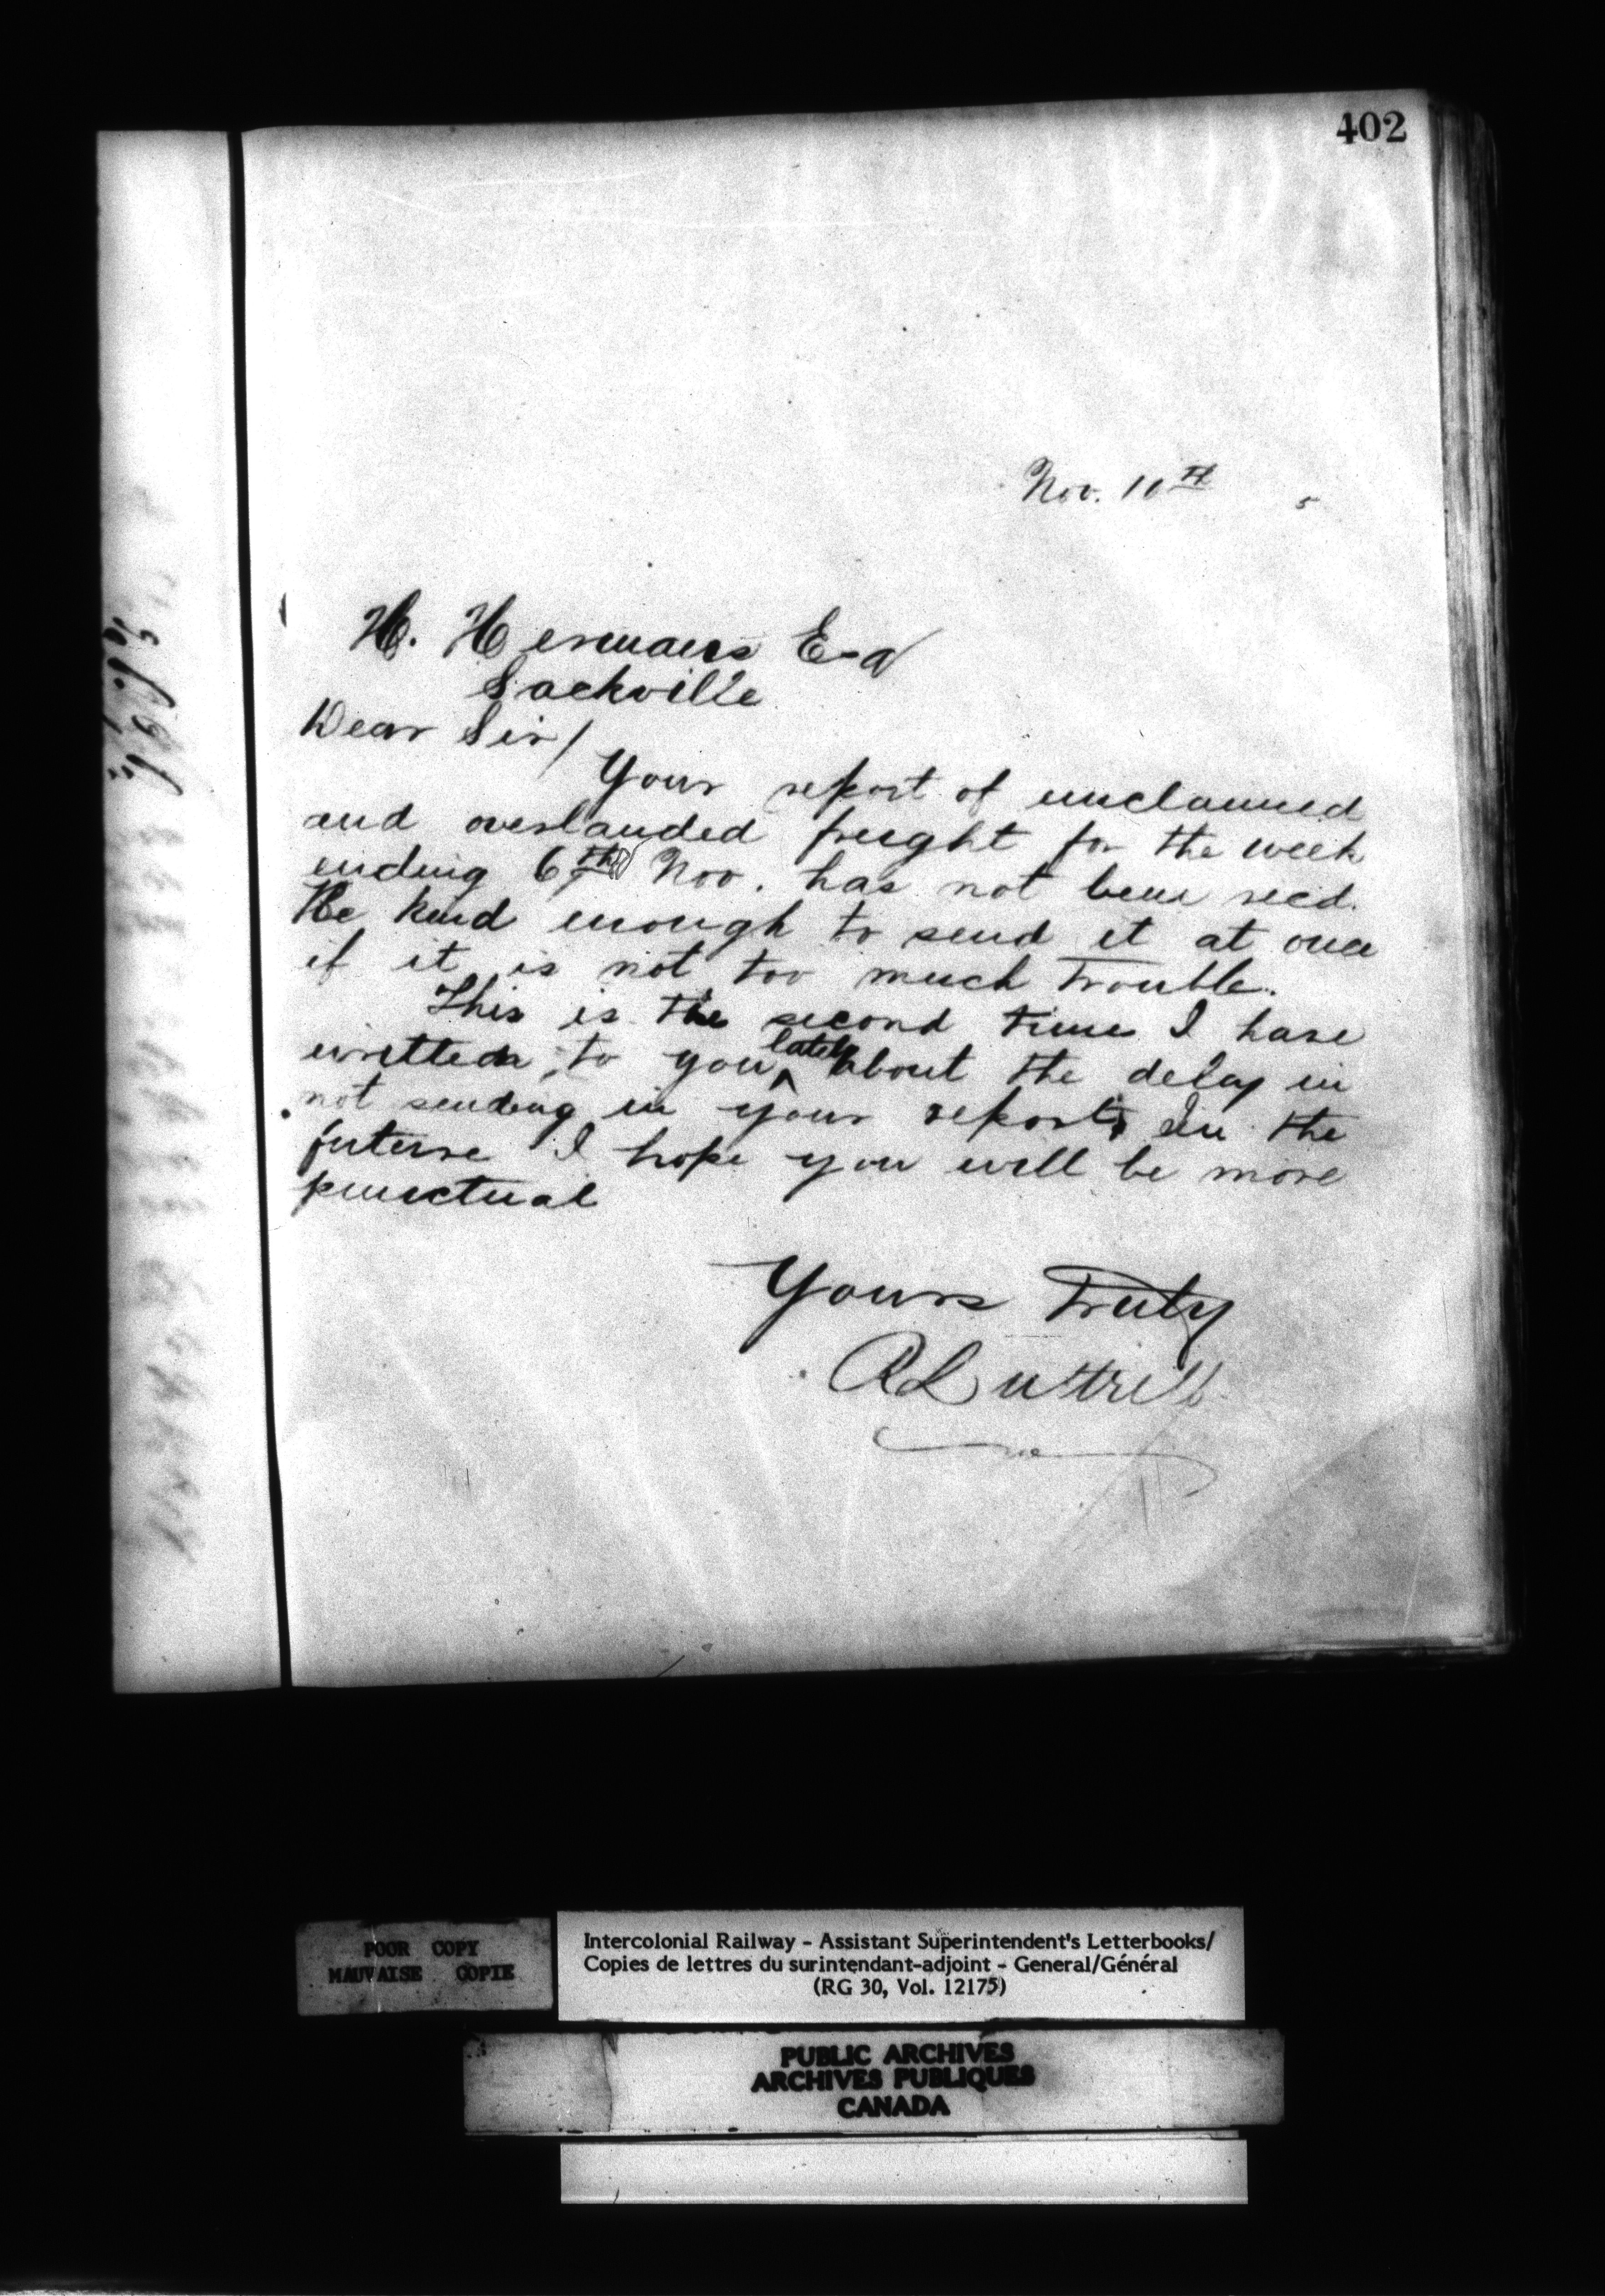 402
Nov. 10th 5
H. Hermans Esq
Sackville
Dear Sir/
Your report of unclaimed
and overlanded freight for the week
ending 6th Nov. has not been recd.
Be kind enough to send it at once
if it is not too much trouble.
This is the second time I have
written to you lately about the delay in
not sending in your reports In the
future I hope you will be more
punctual
Yours Truly
A Luttrell
POOR COPY
MAUVAISE COPIE
Intercolonial Railway - Assistant Superintendent's Letterbooks/
Copies de lettres du surintendant-adjoint - General/Général
(RG 30, Vol. 12175)
PUBLIC ARCHIVES
ARCHIVES PUBLIQUES
CANADA